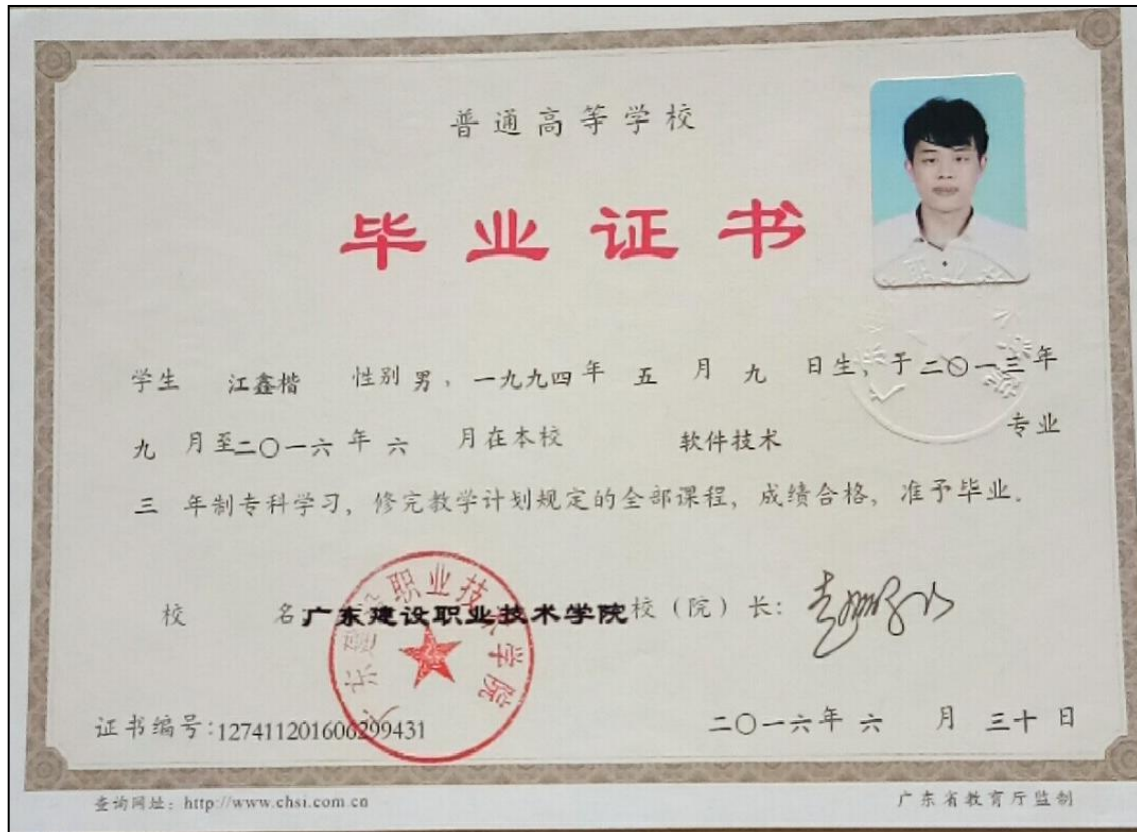 普通高等学校
毕业证书
学生 江鑫楷 性别 男，一九九四年 五 月 九 日生，于二〇一三年
九 月至二〇一六 年 六 月在本校 软件技术 专业
三 年制专科学习，修完教学计划规定的全部课程，成绩合格，准予毕业。
校 名：广东建设职业技术学院 校（院）长：
广东建设职业技术学院
证书编号：127411201606299431 二〇一六年 六 月 三十 日
查询网址：http://www.chsi.com.cn 广东省教育厅监制